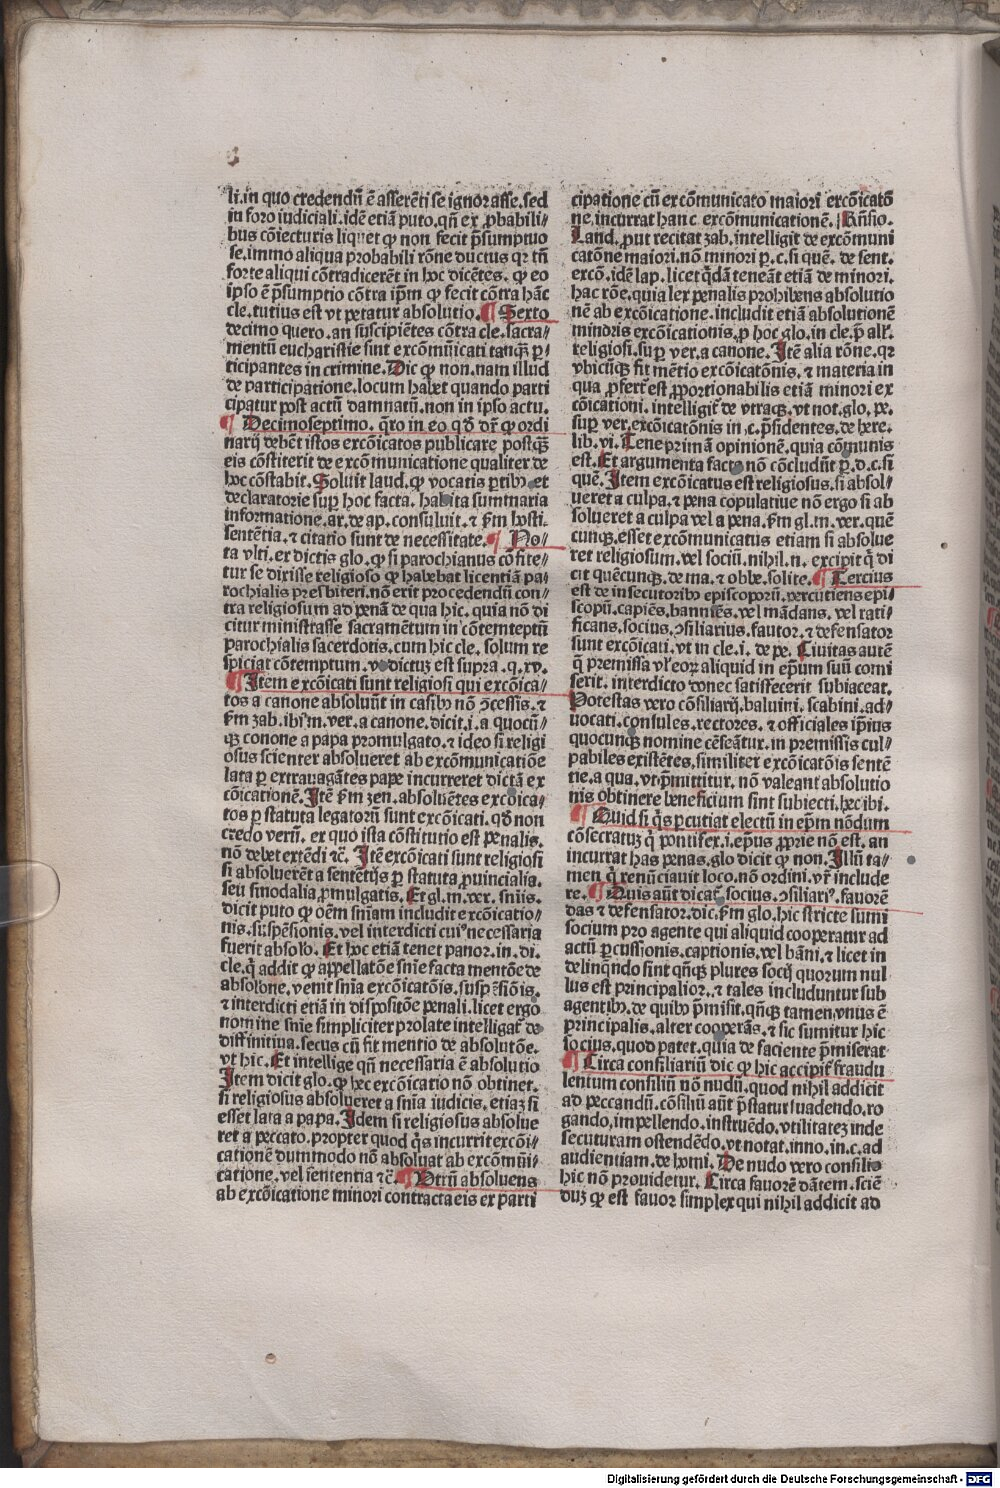 li.in quo credendũ ē asserēti se ignorasse.sed
in foro iudiciali.idē etiã puto.qñ ex ꝓbabili⸗
bus cõiecturis liquet ꝙ non fecit p̃sumptuo
se.immo aliqua probabili rõne ductus qꝛ tñ
forte aliqui cõtradicerēt in hoc dicẽtes. ꝙ eo
ipso ē p̃sumptio cõtra ip̃m ꝙ fecit cõtra hãc
cle.tutius est vt petatur absolutio. ¶ Sexto
decimo quero.an suscipiẽtes cõtra cle.sacra⸗
mentũ eucharistie sint excõmũicati tanqꝫ p̱⸗
ticipantes in crimine.Dic ꝙ non.nam illud
de participatione.locum habet quando parti
cipatur post actũ damnatũ.non in ipso actu.
¶ Decimoseptimo.q̃ro in eo qd̃ dr̃ ꝙ ordi
narij debẽt istos excõicatos publicare postqꝫ
eis cõstiterit de excõmunicatione qualiter de
hoc cõstabit.Soluit laud.ꝙ vocatis p̱tibꝰ et
declaratorie sup̱ hoc facta.habita summaria
informatione.ar.de ap.consuluit.⁊ ẜm hosti.
sentẽtia.⁊ citatio sunt de necessitate.¶ No⸗
ta vlti.ex dictis glo.ꝙ si parochianus cõfite⸗
tur se dixisse religioso ꝙ habebat licentiã pa⸗
rochialis presbiteri.nõ erit procedendũ con⸗
tra religiosum ad penã de qua hic.quia nõ di
citur ministrasse sacramẽtum in cõtemptũ
parochialis sacerdotis.cum hic cle.solum re
spiciat cõtemptum.vt dictuꝫ est supra.q.xv.
¶ Item excõicati sunt religiosi qui excõica⸗
tos a canone absoluũt in casibꝰ nõ ↄcessis.⁊
ẜm zab.ibi in.ver.a canone.dicit.i.a quocũ⸗
qꝫ conone a papa promulgato.⁊ ideo si religi
osus scienter absolueret ab excõmunicatiõe
lata p̱ extrauagãtes pape incurreret dictã ex
cõicationē.Itē ẜm zen.absoluẽtes excõica⸗
tos p̱ statuta legatorũ sunt excõicati.qd̃ non
credo verũ.ex quo ista cõstitutio est penalis.
nõ debet extẽdi ⁊c̃.Itē excõicati sunt religiosi
si absoluerẽt a sentẽtijs p̱ statuta ꝓuincialia.
seu sinodalia ꝓmulgatis.Et gl.in.ver.sniis.
dicit puto ꝙ oẽm sniam includit excõicatio⸗
nis.suspẽsionis.vel interdicti cuiꝰ necessaria
fuerit absolo.Et hoc etiã tenet panor.in.di.
cle.q̃ addit ꝙ appellatõe snie facta mentõe de
absolone.venit snia excõicatõis.suspẽsiõis.
⁊ interdicti etiã in dispositõe penali.licet ergo
nomine snie simpliciter prolate intelligat̃ de
diffinitiua.secus cũ fit mentio de absolutõe.
vt hic.Et intellige qñ necessaria ē absolutio
Item dicit glo.ꝙ hec excõicatio nõ obtinet.
si religiosus absolueret a snia iudicis.etiaꝫ si
esset lata a papa.Idem si religiosus absolue
ret a peccato.propter quod q̃s incurrit excõi⸗
cationē dummodo nõ absoluat ab excõmũi⸗
catione.vel sententia ⁊c̃.¶ Vtrũ absoluens
ab excõicatione minori contracta eis ex parti
cipatione cũ excõmunicato maiori excõicatõ
ne.incurrat hanc excõmunicationē.Rñsio.
Laud.prout recitat zab.intelligit de excõmuni
catõne maiori.nõ minori p̱.c.si quē.de sent.
excõ.idē lap.licet q̃dã teneãt etiã de minori.
hac rõe.quia lex penalis prohibens absolutio
nē ab excõicatione.includit etiã absolutionē
minoris excõicationis.ꝓ hoc glo.in cle.p̃ all.
religiosi.sup̱ ver.a canone.Itē alia rõne.qꝛ
vbicũqꝫ fit mẽtio excõicatõnis.⁊ materia in
qua ꝓfert̃ est ꝓportionabilis etiã minori ex
cõicationi.intelligit̃ de vtraqꝫ.vt not.glo.pe.
sup̱ ver.excõicatõnis in c.p̃sidentes.de here.
lib.vi.Tene primã opinionē.quia cõmunis
est.Et argumenta facta nõ cõcludũt p̱.d.c.si
quē.Item excõicatus est religiosus.si absol⸗
ueret a culpa.⁊ pena copulatiue nõ ergo si ab
solueret a culpa vel a pena.ẜm gl.in.ver.quē
cunqꝫ.esset excõmunicatus etiam si absolue
ret religiosum.vel sociũ.nihil.n. excipit q̃ di
cit quēcunqꝫ.de ma.⁊ obbe.solite.¶ Tercius
est de insecutoribꝰ episcoporũ.percutiens epi⸗
scopũ.capiẽs.banniẽs.vel mãdans.vel rati⸗
ficans.socius.ↄsiliarius.fautor.⁊ defensator
sunt excõicati.vt in cle.i.de pe.Ciuitas autē
q̃ premissa vl eoꝝ aliquid in ep̃um suũ comi
serit.interdicto donec satisfecerit subiaceat.
Potestas vero cõsiliarij.baluini.scabini.ad⸗
uocati.consules.rectores.⁊ officiales ip̃ius
quocunqꝫ nomine cẽseãtur.in premissis cul⸗
pabiles existẽtes.similiter excõicatõis sentẽ
tie.a qua.vt p̃mittitur.nõ valeant absolutio
nis obtinere beneficium sint subiecti.hec ibi.
¶ Quid si q̃s p̱cutiat electũ in ep̃m nõdum
cõsecratuꝫ q̃ pontifex.i.ep̃us ꝓprie nõ est.an
incurrat has penas.glo dicit ꝙ non.Illũ ta⸗
men q̃ renũciauit loco.nõ ordini.vr̃ include
re.¶ Quis aũt dicat̃ socius.ↄsiliariꝰ.fauorē
das ⁊ defensator.dic.ẜm glo.hic stricte sumi
socium pro agente qui aliquid cooperatur ad
actũ p̱cussionis.captionis.vel bãni.⁊ licet in
delinqñdo sint qñqꝫ plures socij quorum nul
lus est principalior.⁊ tales includuntur sub
agentibꝰ.de quibꝰ p̃misit.qñqꝫ tamen.vnus ē
principalis.alter cooperãs.⁊ sic sumitur hic
socius.quod patet.quia de faciente p̃miserat
¶ Circa consiliariũ dic ꝙ hic accipit̃ fraudu
lentum consiliũ nõ nudũ.quod nihil addicit
ad peccandũ.cõsiliũ aũt p̃statur suadendo.ro
gando,impellendo.instruẽdo.vtilitateꝫ inde
secuturam ostendẽdo.vt notat.inno.in.c.ad
audientiam.de homi.De nudo vero consilio
hic nõ prouidetur.Circa fauorē dãtem.sciē
duꝫ ꝙ est fauor simplex qui nihil addicit ad
Digitalisierung gefördert durch die Deutsche Forschungsgemeinschaft - DFG